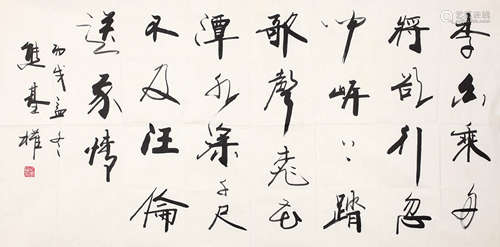 李白乘舟
將欲行忽
闻岸上踏
歌聲桃花
潭水深千尺
不及汪倫
送我情
丙戌孟冬
熊基權